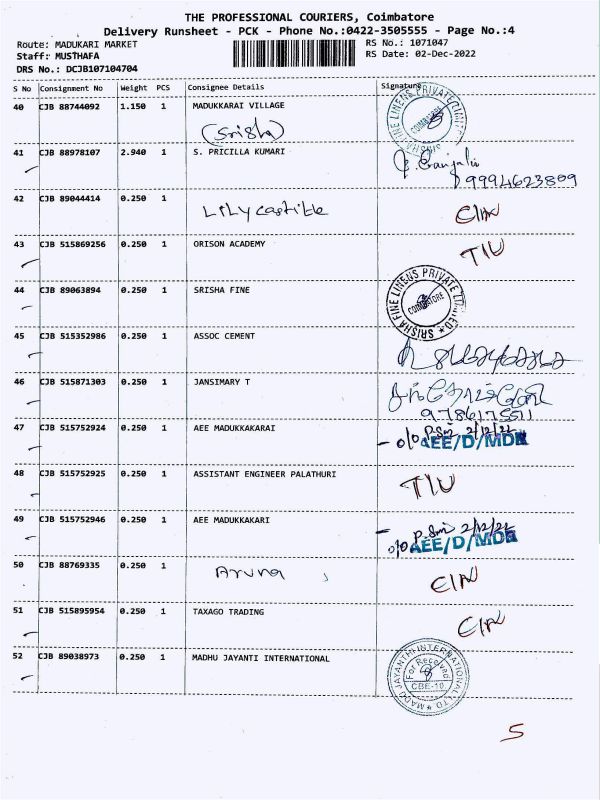 THE PROFESSIONAL COURIERS, Coimbatore
Delivery Runsheet - PCK - Phone No.:0422-3505555 - Page No.:4
Route: MADUKARI MARKET
RS No.: 1071047
Staff: MUSTHAFA
RS Date: 02-Dec-2022
DRS No.: DCJB107104704
S No Consignment No Weight PCS Consignee Details Signature
40 CJB 88744092 1.150 1 MADUKKARAI VILLAGE
(Srisha)
SRISHA FINE LINENS PRIVATE LIMITED
COIMBATORE
41 CJB 88978107 2.940 1 S. PRICILLA KUMARI
9994623809
42 CJB 89044414 0.250 1
Lily castille
43 CJB 515869256 0.250 1 ORISON ACADEMY
TIU
44 CJB 89063894 0.250 1 SRISHA FINE
SRISHA FINE LINENS PRIVATE LIMITED
COIMBATORE
45 CJB 515352986 0.250 1 ASSOC CEMENT
46 CJB 515871303 0.250 1 JANSIMARY T
9786175511
47 CJB 515752924 0.250 1 AEE MADUKKAKARAI
P.Sm 2/12/22
o/o AEE/D/MDK
48 CJB 515752925 0.250 1 ASSISTANT ENGINEER PALATHURI
TIU
49 CJB 515752946 0.250 1 AEE MADUKKAKARI
P.Sm 2/12/22
o/o AEE/D/MDK
50 CJB 88769335 0.250 1
Aruna
51 CJB 515895954 0.250 1 TAXAGO TRADING
52 CJB 89038973 0.250 1 MADHU JAYANTI INTERNATIONAL
MADHU JAYANTHI INTERNATIONAL LTD
For Received
CBE-10
5